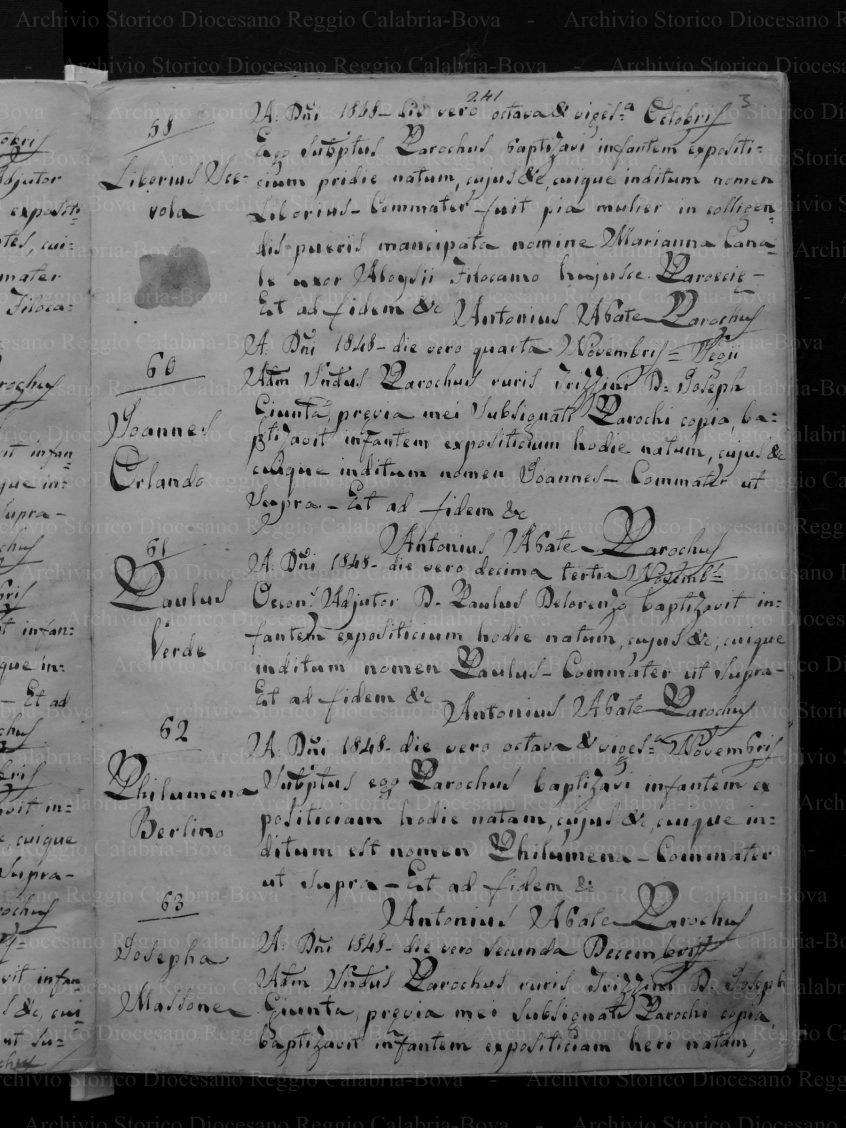 Archivio Storico Diocesano Reggio Calabria-Bova
241
3
58
Liborius Sce-
vola
A. Dñi 1848- die vero octava & viges.a Octobris
Ego Subp̃tus Parochus baptizavi infantem expositi=
cium pridie natum, cujus &c, cuique inditum nomen
Liborius- Commater fuit pia mulier in colligen
dis pueris mancipata nomine Marianna Cana
le uxor Aloysii Filocamo hujusce Paroecie-
Et ad fidem &c Antonius Abate Parochus
60
Joannes
Orlando
A. Dñi 1848- die vero quarta Novembris=
Parochus ruris D. Joseph
Giunta, previa mei Subsignati Parochi copia, ba=
ptizavit infantem expositicium hodie natum, cujus &c
cuique inditum nomen Joannes- Commater ut
Supra- Et ad fidem &c
Antonius Abate Parochus
61
Paulus
Verde
A. Dñi 1848- die vero decima tertia Novemb.
Adjutor D. Paulus Delorenzo baptizavit in=
fantem expositicium hodie natum, cujus &c, cuique
inditum nomen Paulus- Commater ut Supra-
Et ad fidem &c Antonius Abate Parochus
62
Philumena
Berlino
A. Dñi 1848- die vero octava & viges.a Novembris
Subp̃tus ego Parochus baptizavi infantem ex
positiciam hodie natam, cujus &c, cuique in=
ditum est nomen Philumena- Commater
ut Supra- Et ad fidem &c
Antonius Abate Parochus
63
Josepha
Massone
A. Dñi 1848- die vero Secunda Decembris
Parochus ruris D. Joseph
Giunta, previa mei Subsignati Parochi copia,
baptizavit infantem expositiciam heri natam,